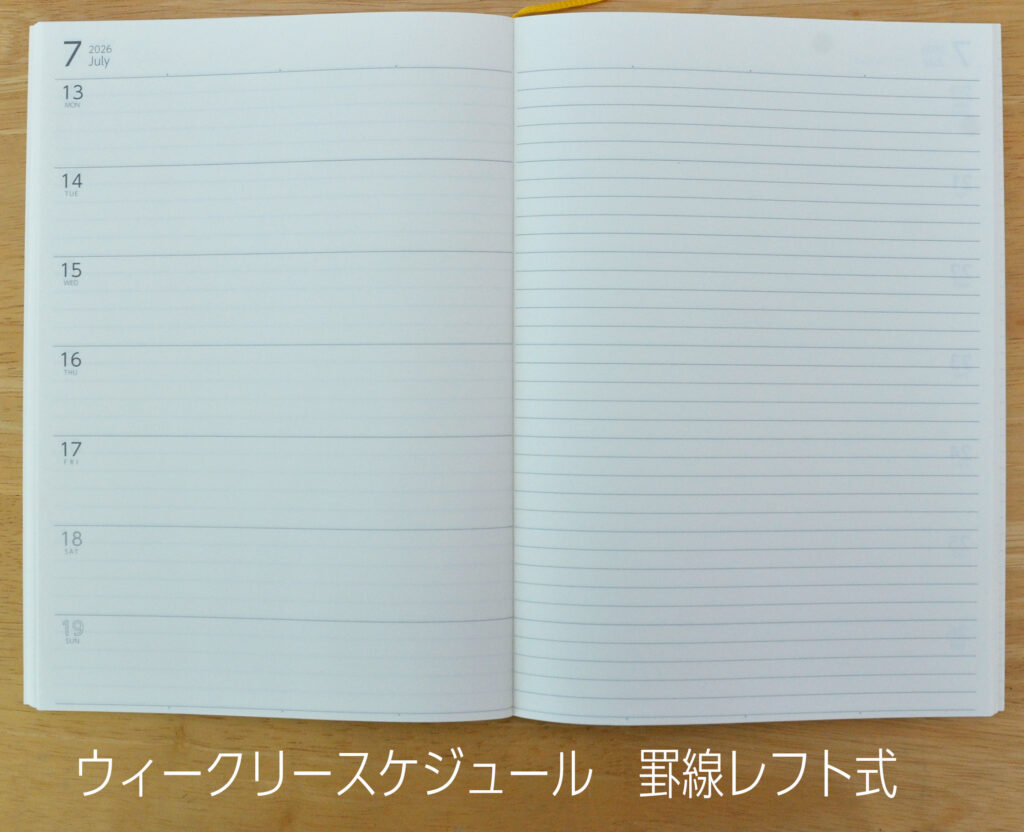 7 2026
July
13
MON
14
TUE
15
WED
16
THU
17
FRI
18
SAT
19
SUN
ウィークリースケジュール 罫線レフト式